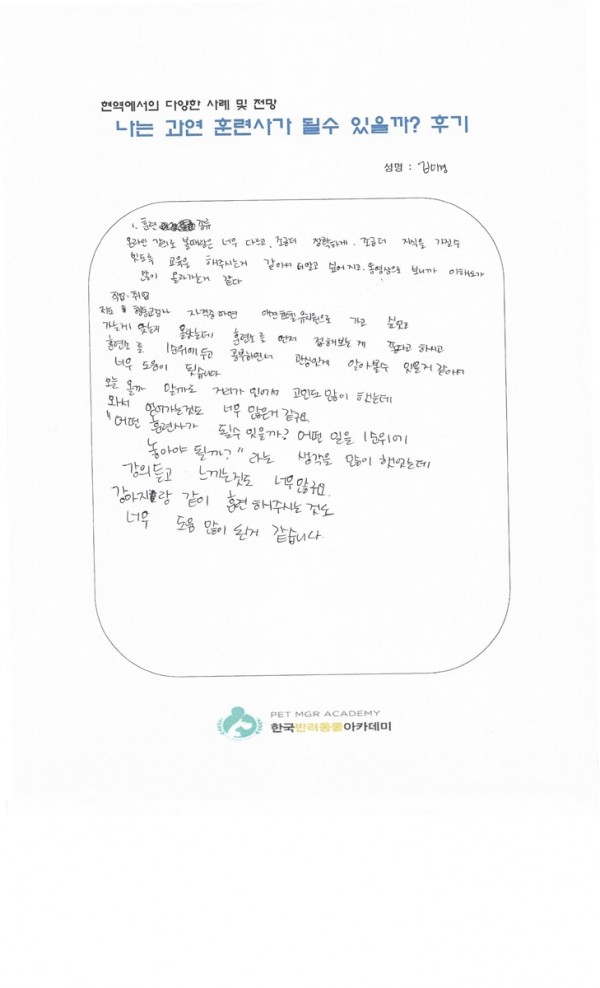 현역에서의 다양한 사례 및 전망
나는 과연 훈련사가 될수 있을까? 후기
성명 :
1. 훈련 종류
온라인 강의로 볼때랑은 너무 다르고, 조금더 정확하게, 조금더 지식을 가질수
있도록 교육을 해주시는거 같아서 더알고 싶어 지고. 동영상으로 보니까 이해도가
많이 올라가는거 같다
직업. 취업
저도 행동교정사 자격증 하면 애견 호텔, 유치원으로 가고 싶고
가는게 맞는데 훈련소를 먼저 접해보는 게 좋다고 하시고
훈련소를 1순위에 두고 공부하면서 관심있게 알아볼수 있을거 같아서
너무 도움이 됫습니다
오늘 올까 말까로 거리가 있어서 고민도 많이 했는데
와서 얻어가는것도 너무 많은거 같구요
"어떤 훈련사가 될수 있을까? 어떤 일을 1순위에
놓아야 될까?" 라는 생각을 많이 했었는데
강의듣고 느끼는것도 너무많구요.
강아지랑 같이 훈련 해주시는 것도
너무 도움 많이 된거 같습니다.
PET MGR ACADEMY
한국반려동물아카데미